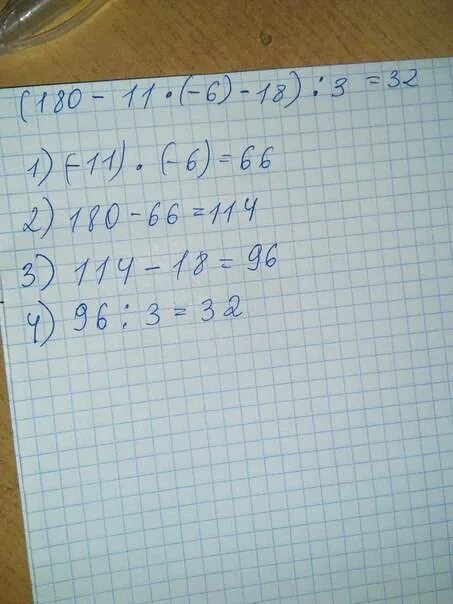 (180 - 11 · (-6) - 18) : 3 = 32
1) (-11) · (-6) = 66
2) 180 - 66 = 114
3) 114 - 18 = 96
4) 96 : 3 = 32